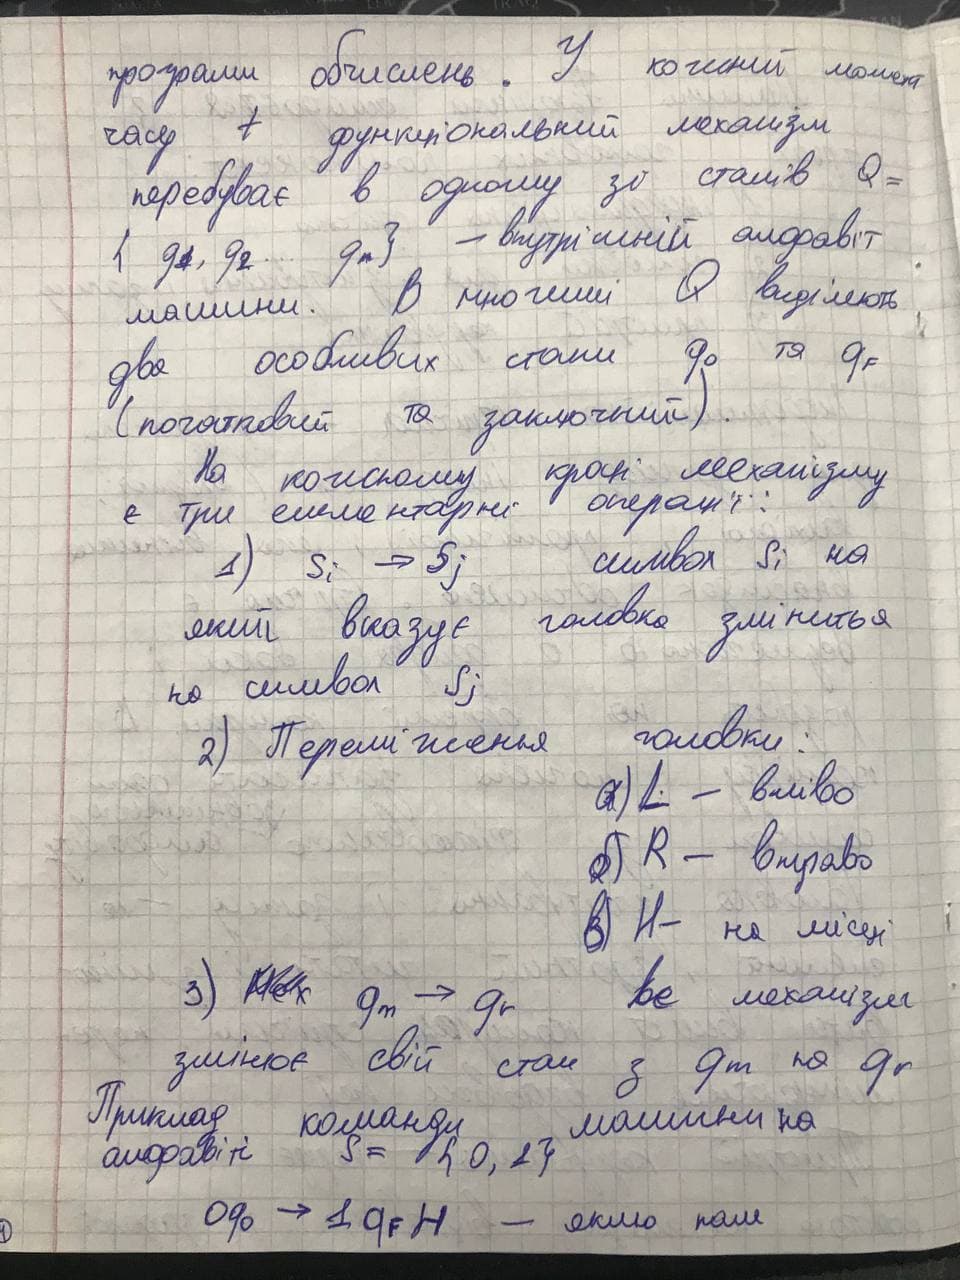 програми обчислень. У кожний момент
часу t функціональний механізм
перебуває в одному зі станів Q =
{ q1, q2 .... qn} – внутрішній алфавіт
машини. В множині Q виділяють
два особливих стани q0 та qF
(початковий та заключний).
На кожному кроці механізму
є три елементарні операції:
1) Si → Sj символ Si на
який вказує головка зміниться
на символ Sj
2) Переміження головки:
а) L – вліво
б) R – вправо
в) H – на місці
3) qm → qr механізм
змінює свій стан з qm на qr
Приклад команди машини на
алфавіті S = {0, 1}
0q0 → 1 qF H – якщо пам